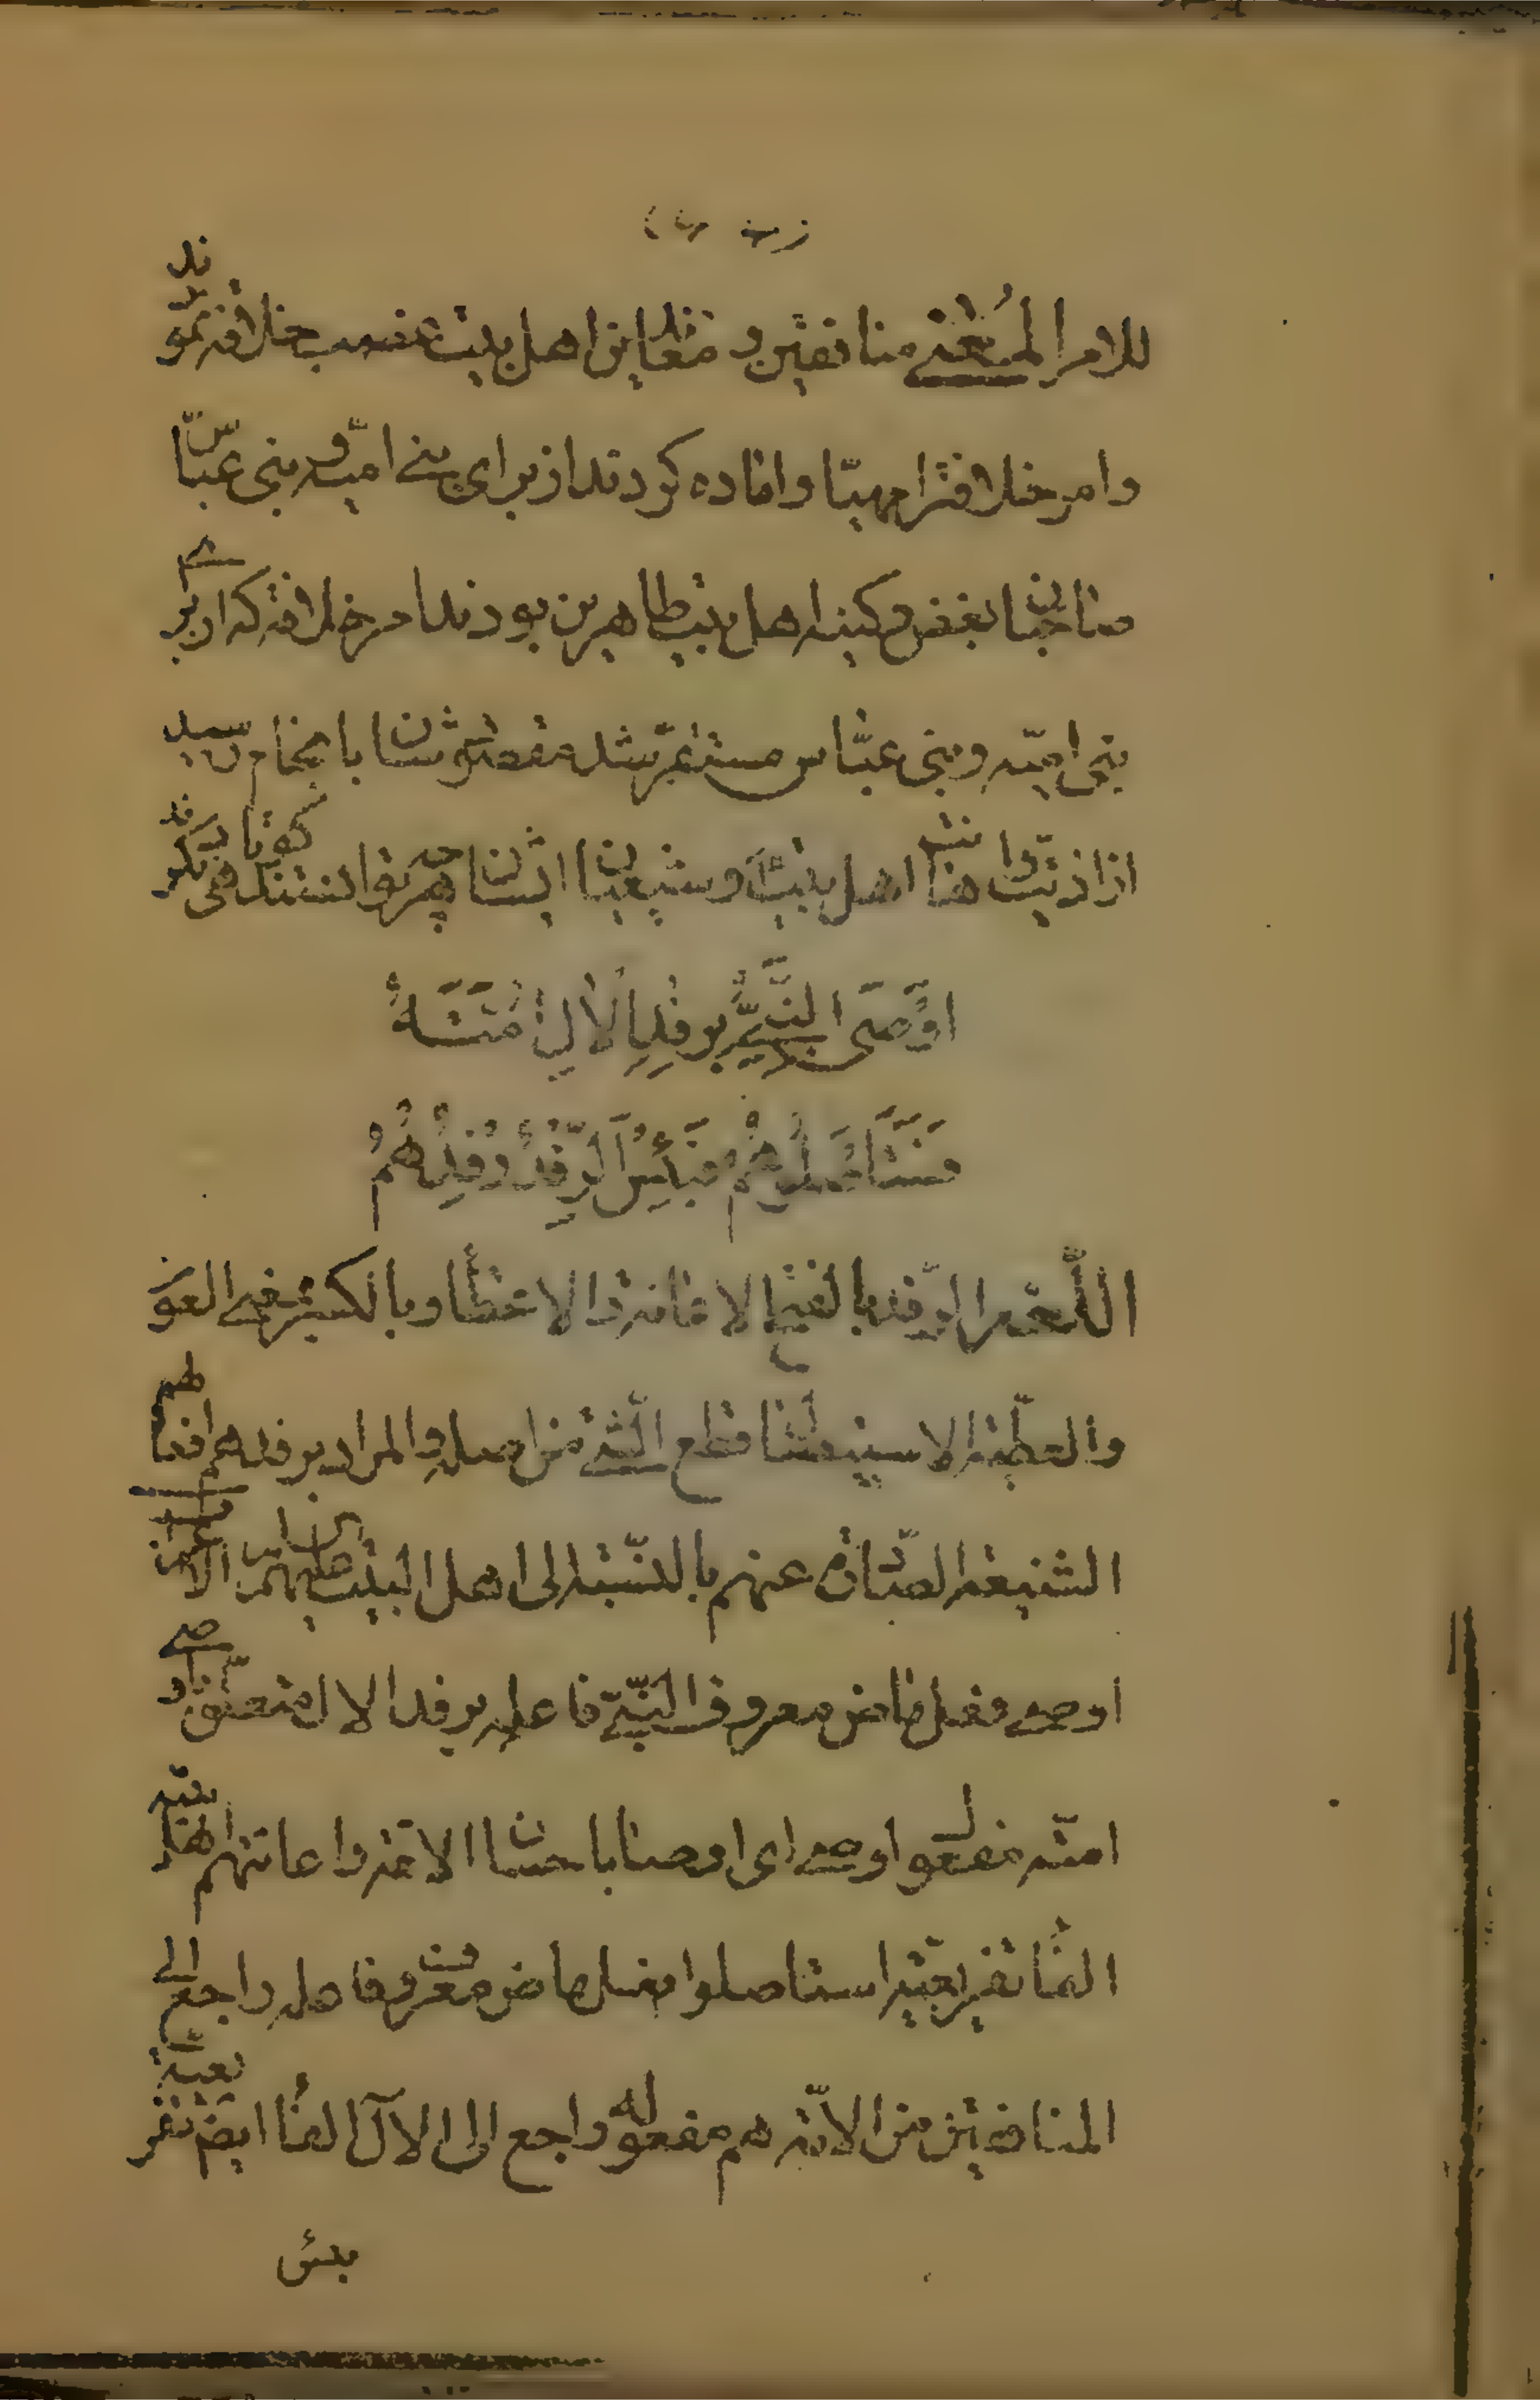 للامر المعنے منافقین و معاندین اهل بیت غصب خلافة نمودند
و امر خلافترا مهیّا و اماده کردند از برای بنے امیّه و بنی عبّاس
صاحبان بغض و کینه اهل بیت طاهرین بودند امر خلافة که از بر
بنی امیّه و بنی عبّاس مستقر شد مقصود شان با نجام رسید
از اذیّت اهل بیت و شیعیان ایشان هر چه توانستند کوتاهی نکردند
اوْصَى النَّبِيُّ بِرِفْدِ الْآلِ امَّتَهُ
فَاسْتَأْصَلُوهُمْ فَبِئْسَ الرِّفْدُ رِفْدُهُمُ
اللّغة الرّفد بالفتح الاعانة و الاعطاء و بالكسر بمعنے العون
و العطيّة الاستيصال قطع الشّئ من اصله و المراد برفدهم افعالهم
الشنيعة الصّادرة عنهم بالنّسبة الى اهل البيت عليهم السلام الاعراب
اوصے فعل ماض معروف النّبيّ فاعله برفد الال متعلّق باوصے
امّته مفعول اوصے ای اوصنا باحسان الال امّته و اعانتهم
الفاء تفريعيّة استاصلوا فعل ماض معروف فاعله راجع الى
المنافقين من الامّة هم مفعوله راجع الى الآل الفاء ايضا تفريعيّة
بئس